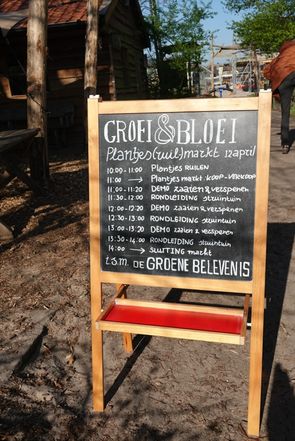 GROEI & BLOEI
Plantjes(ruil)markt 12 april
10:00 - 11:00 Plantjes RUILEN
11:00 → Plantjes markt KOOP-VERKOOP
11:00 - 11:20 DEMO zaaien & verspenen
11:30 - 12:00 RONDLEIDING struintuin
12:00 - 12:20 DEMO zaaien & verspenen
12:30 - 13:00 RONDLEIDING struintuin
13:00 - 13:20 DEMO zaaien & verspenen
13:30 - 14:00 RONDLEIDING struintuin
14:00 → SLUITING markt
t.s.m. DE GROENE BELEVENIS